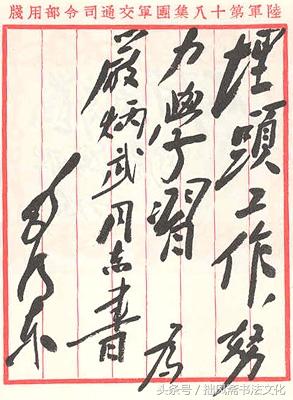 陸軍第十八集團軍交通司令部用牋
埋頭工作、努
力學習 為
嚴炳武同志書
毛澤東
头条号 / 拙风斋书法文化